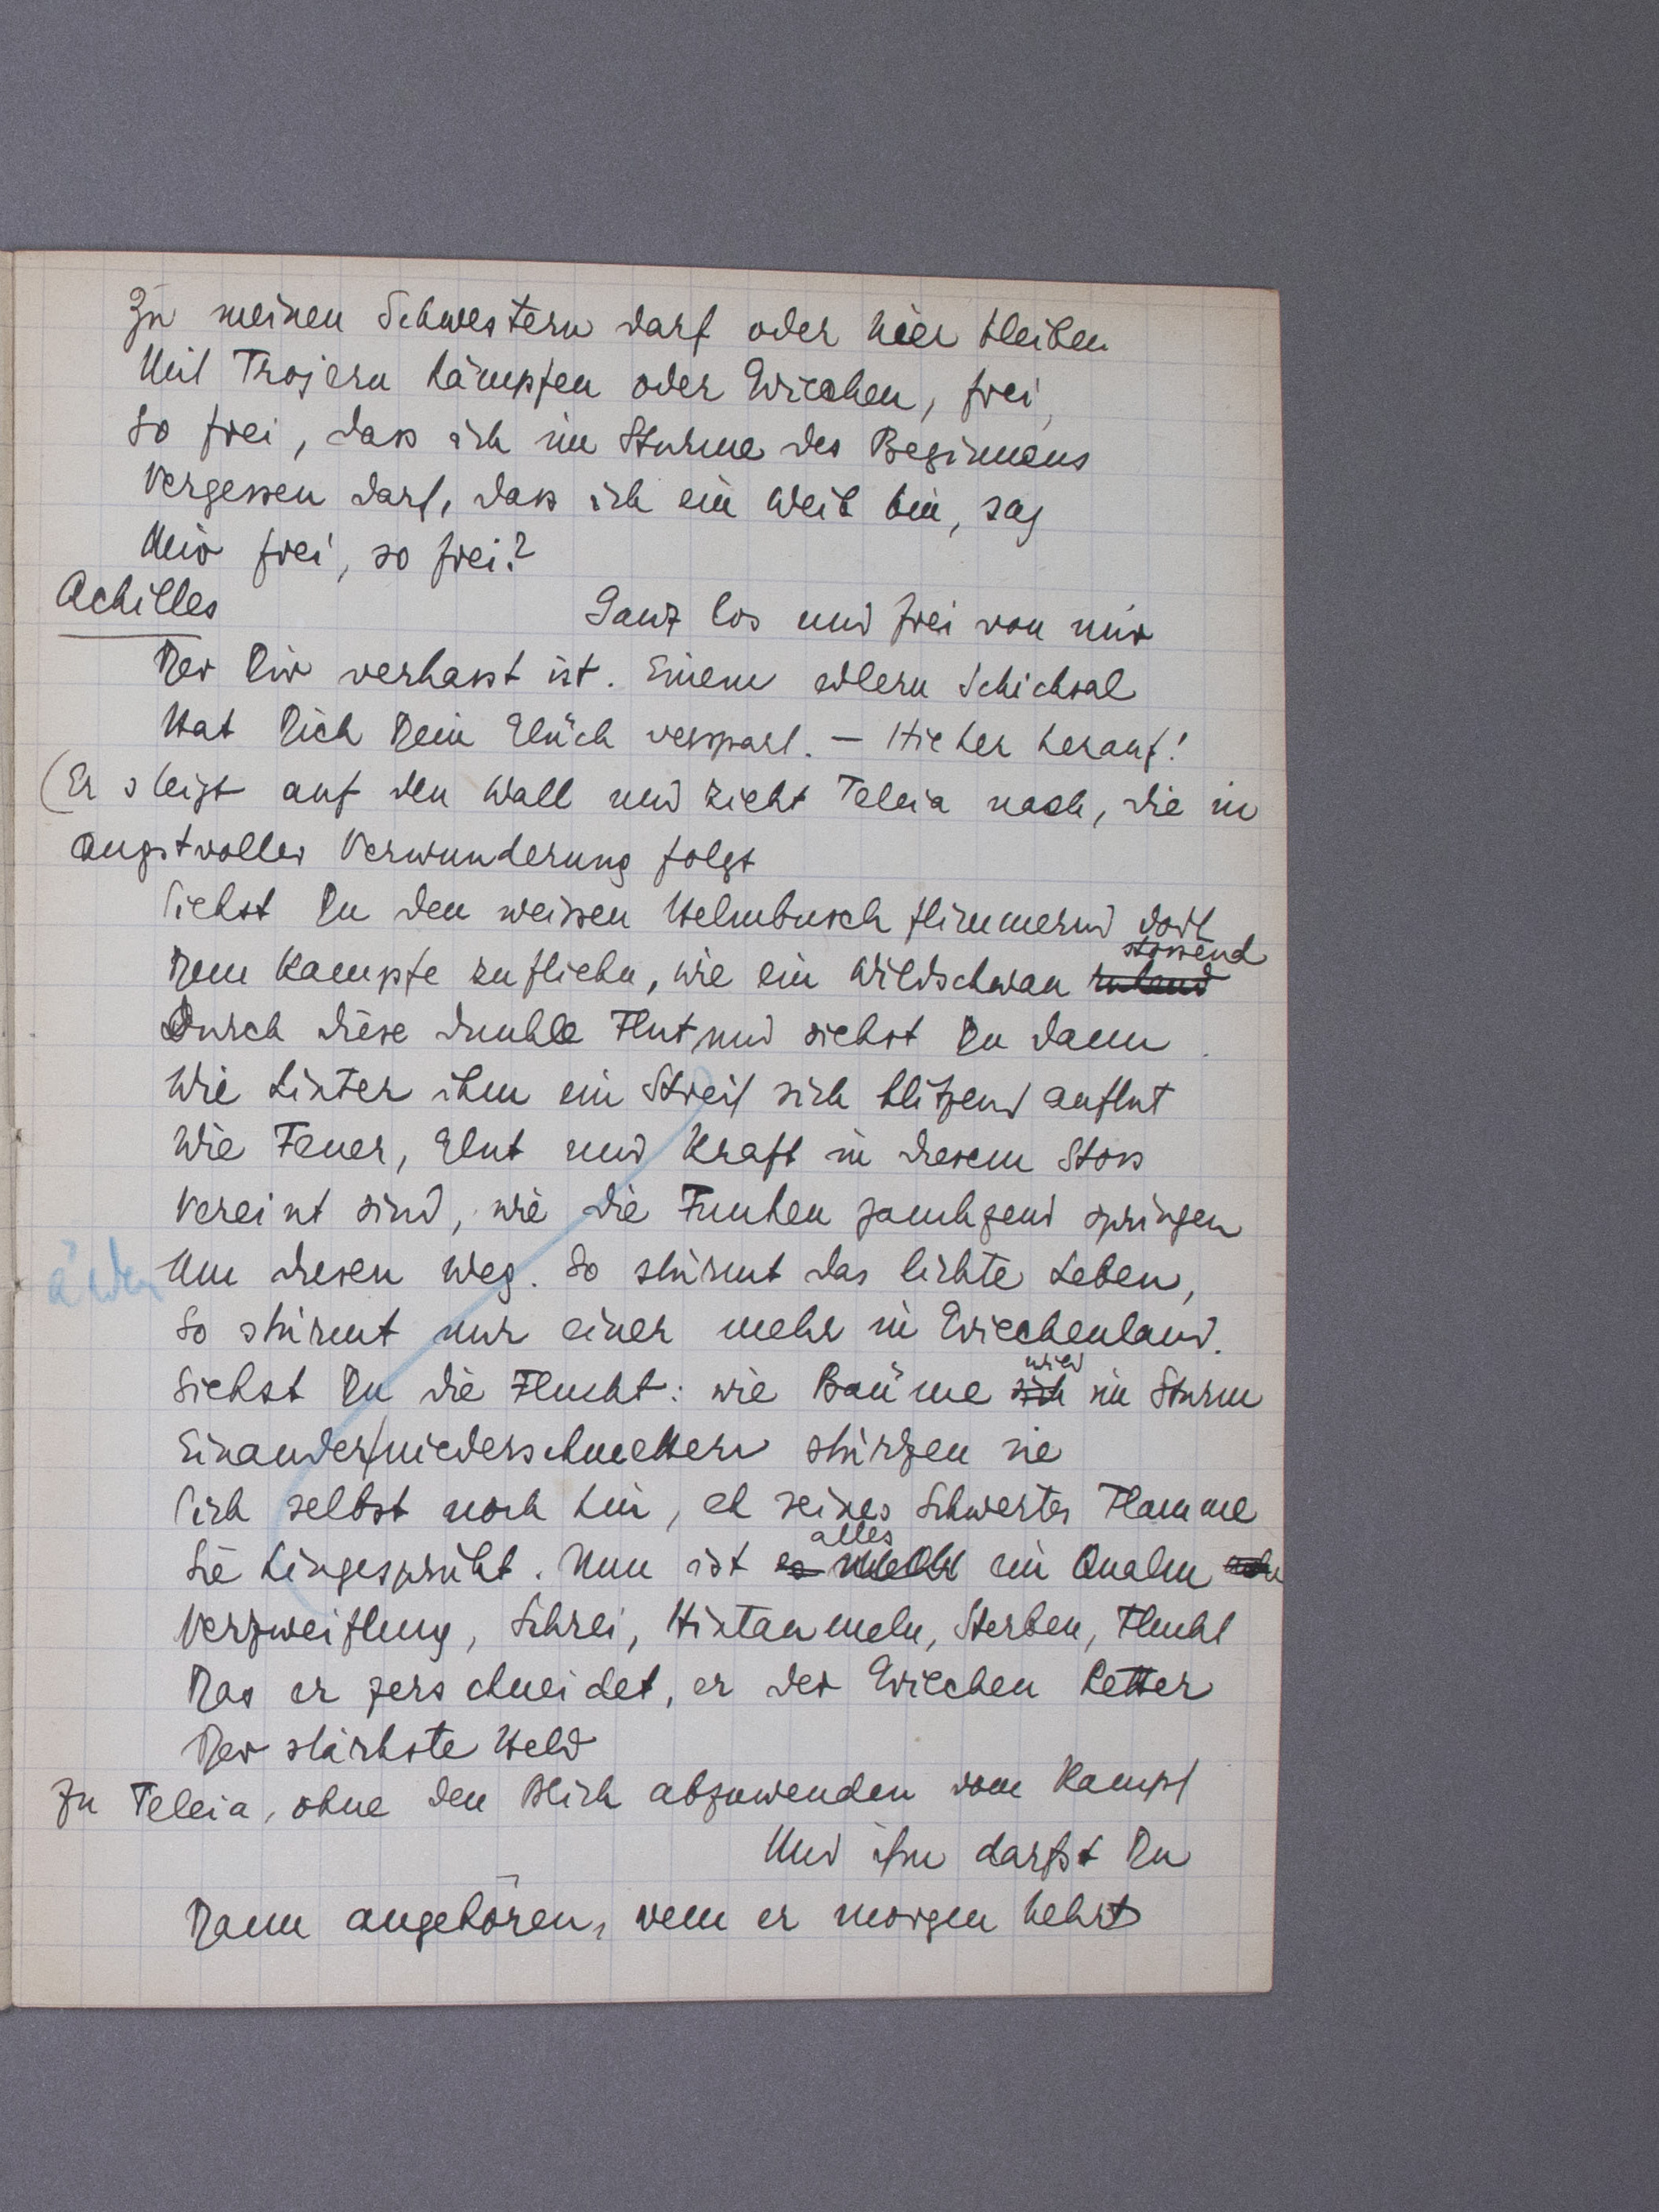 Zu meinen Schwestern darf oder hier bleiben
Mit Trojern kämpfen oder Griechen, frei,
So frei, dass ich im Sturme des Beginnens
Vergessen darf, dass ich ein Weib bin, sag
Mir frei, so frei?
Achilles Ganz los und frei von mir
Der Dir verhasst ist. Einem edlern Schicksal
Hat Dich Dein Glück verspart. – Hieher herauf!
(Er steigt auf den Wall und zieht Teleia nach, die in
angstvoller Verwunderung folgt
Siehst Du den weissen Helmbusch flimmernd dort
stossend
Dem Kampfe zufliehn, wie ein Wildschwan
Durch diese dunkle Flut, und siehst Du dann
Wie hinter ihm ein Streif sich blitzend auftut
Wie Feuer, Glut und Kraft in diesem Stoss
Vereint sind, wie die Funken jauchzend springen
Um diesen Weg. So stürmt das lichte Leben,
ändern
So stürmt nur einer mehr in Griechenland.
wild
Siehst Du die Flucht: wie Bäume sich im Sturm
Einander niederschmettern stürzen sie
Sich selbst noch hin, eh seines Schwertes Flamme
alles
Sie hingesprüht. Nun ist es ein Qualm
Verzweiflung, Schrei, Hintaumeln, Sterben, Flucht
Das er zerschneidet, er der Griechen Retter
Der stärkste Held
Zu Teleia, ohne den Blick abzuwenden vom Kampf
Und ihm darfst Du
Dann angehören, wenn er morgen kehrt